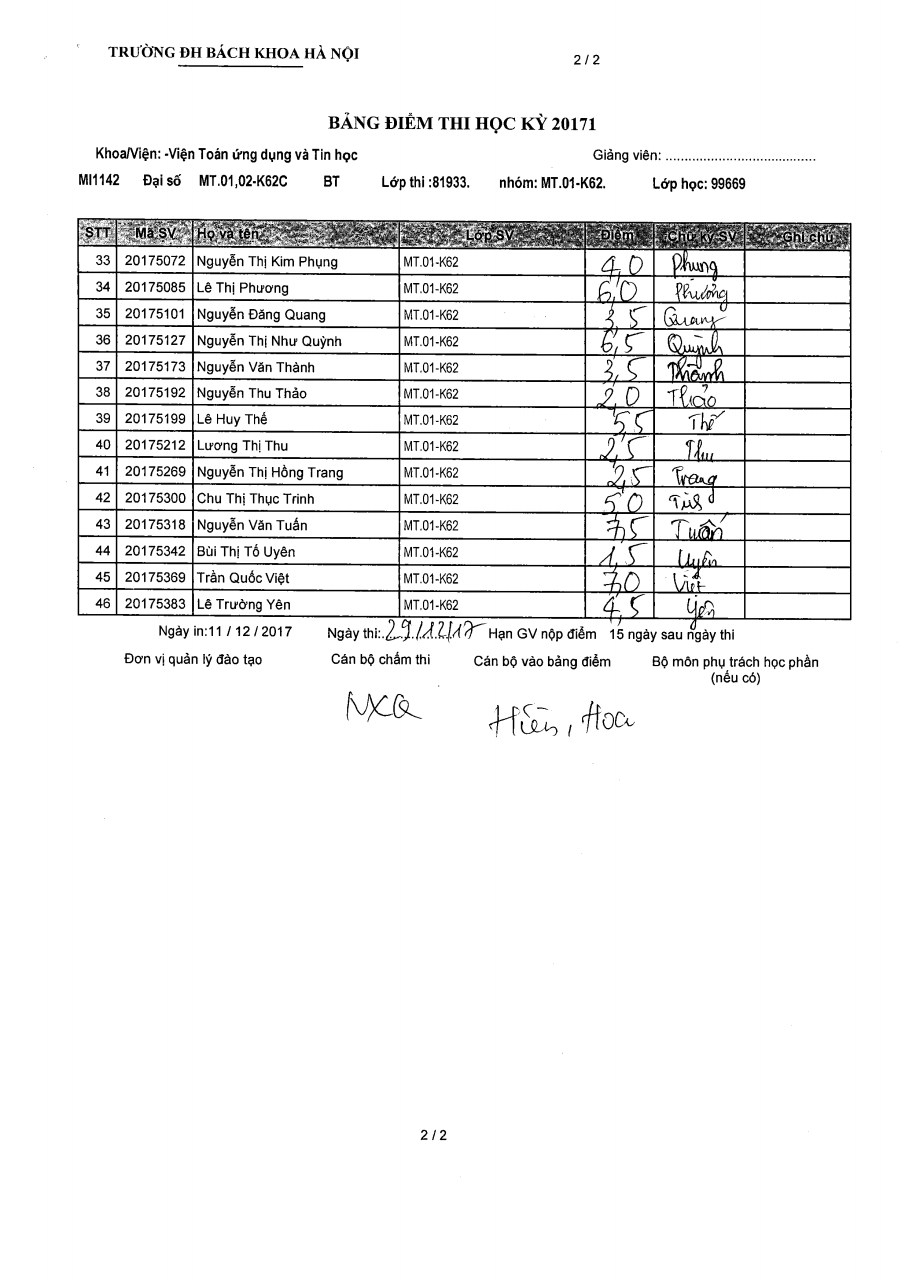 TRƯỜNG ĐH BÁCH KHOA HÀ NỘI
2 / 2
BẢNG ĐIỂM THI HỌC KỲ 20171
Khoa/Viện: -Viện Toán ứng dụng và Tin học Giảng viên: ..........................................
MI1142 Đại số MT.01,02-K62C BT Lớp thi :81933. nhóm: MT.01-K62. Lớp học: 99669
STT Mã SV Họ và tên Lớp SV Điểm Chữ ký SV Ghi chú
33 20175072 Nguyễn Thị Kim Phụng MT.01-K62 4,0 Phung
34 20175085 Lê Thị Phương MT.01-K62 6,0 Phương
35 20175101 Nguyễn Đăng Quang MT.01-K62 3,5 Quang
36 20175127 Nguyễn Thị Như Quỳnh MT.01-K62 6,5 Quỳnh
37 20175173 Nguyễn Văn Thành MT.01-K62 3,5 Thành
38 20175192 Nguyễn Thu Thảo MT.01-K62 2,0 Thảo
39 20175199 Lê Huy Thế MT.01-K62 5,5 Thế
40 20175212 Lương Thị Thu MT.01-K62 2,5 Thu
41 20175269 Nguyễn Thị Hồng Trang MT.01-K62 2,5 Trang
42 20175300 Chu Thị Thục Trinh MT.01-K62 5,0
43 20175318 Nguyễn Văn Tuấn MT.01-K62 7,5 Tuấn
44 20175342 Bùi Thị Tố Uyên MT.01-K62 1,5 Uyên
45 20175369 Trần Quốc Việt MT.01-K62 7,0 Việt
46 20175383 Lê Trường Yên MT.01-K62 4,5 Yên
Ngày in:11 / 12 / 2017 Ngày thi:.29/12/17 Hạn GV nộp điểm 15 ngày sau ngày thi
Đơn vị quản lý đào tạo Cán bộ chấm thi Cán bộ vào bảng điểm Bộ môn phụ trách học phần
(nếu có)
NXQ Hiền, Hoa
2 / 2